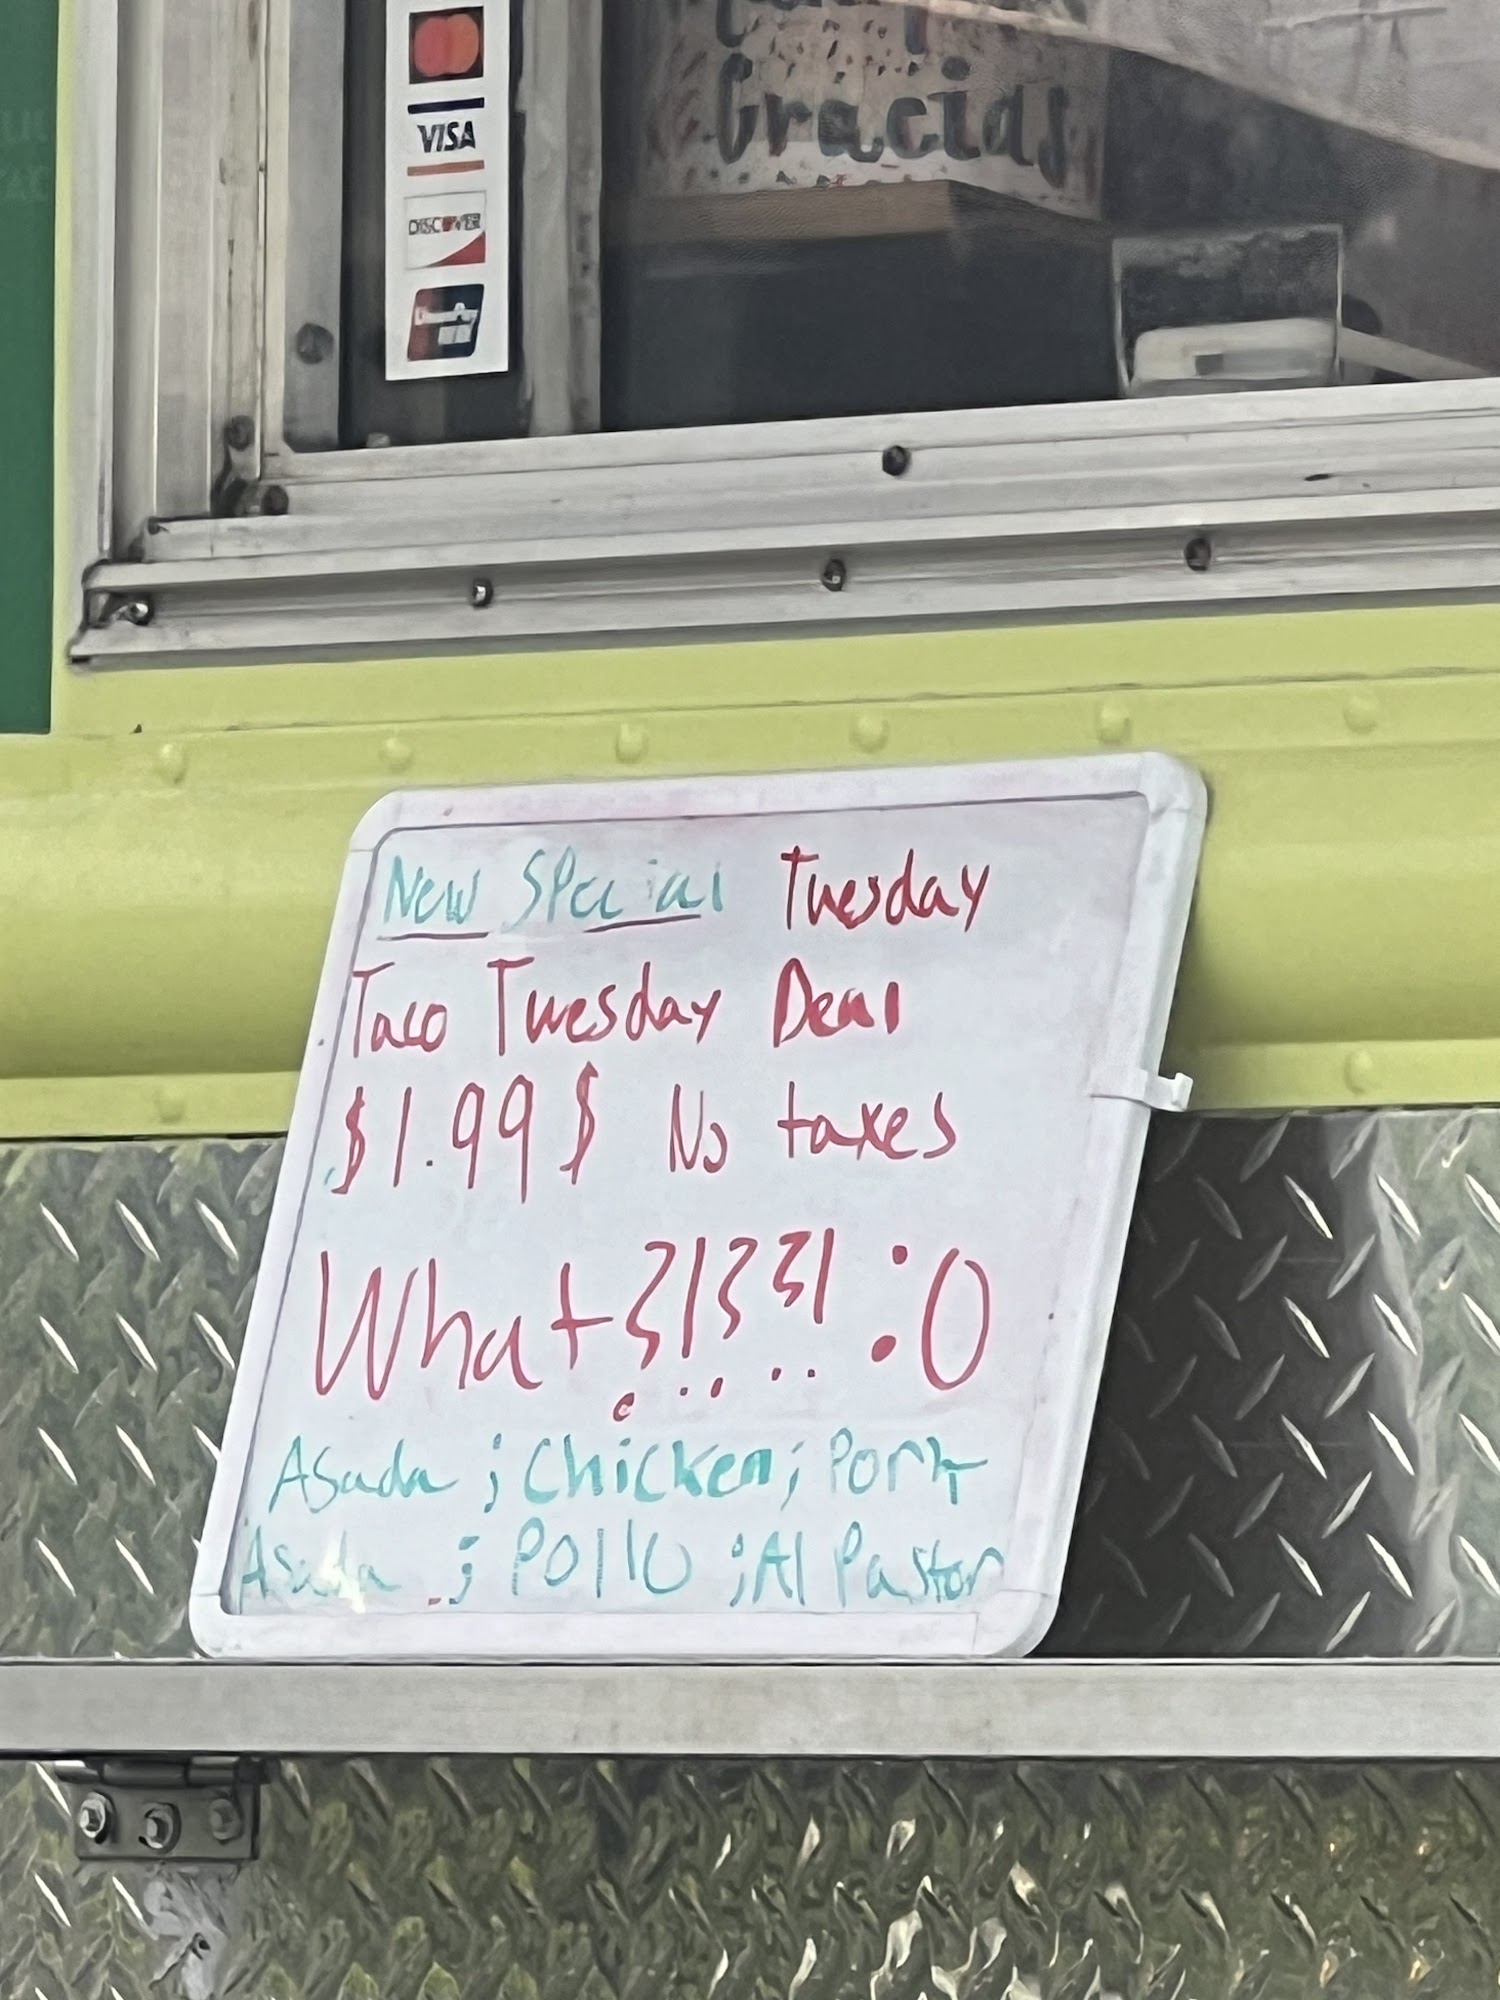 VISA
DISCOVER
Gracias
New Special Tuesday
Taco Tuesday Deal
$1.99$ No taxes
What?!??! :O
Asada ; Chicken ; Pork
Asada ; Pollo ; Al Pastor